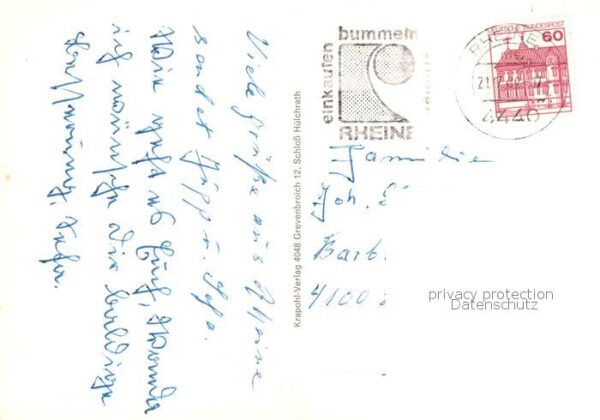 Viele Grüße aus Rheine
sendet Jupp u. Sefa.
Wie geht es Euch,
ich wünsche Dir baldige
Sefa.
Krapohl-Verlag 4048 Grevenbroich 12, Schloß Hülchrath
bummeln
einkaufen
RHEINE
RHEINE
4440
DEUTSCHE BUNDESPOST
60
Familie
Joh.
Barb.
4100
privacy protection
Datenschutz